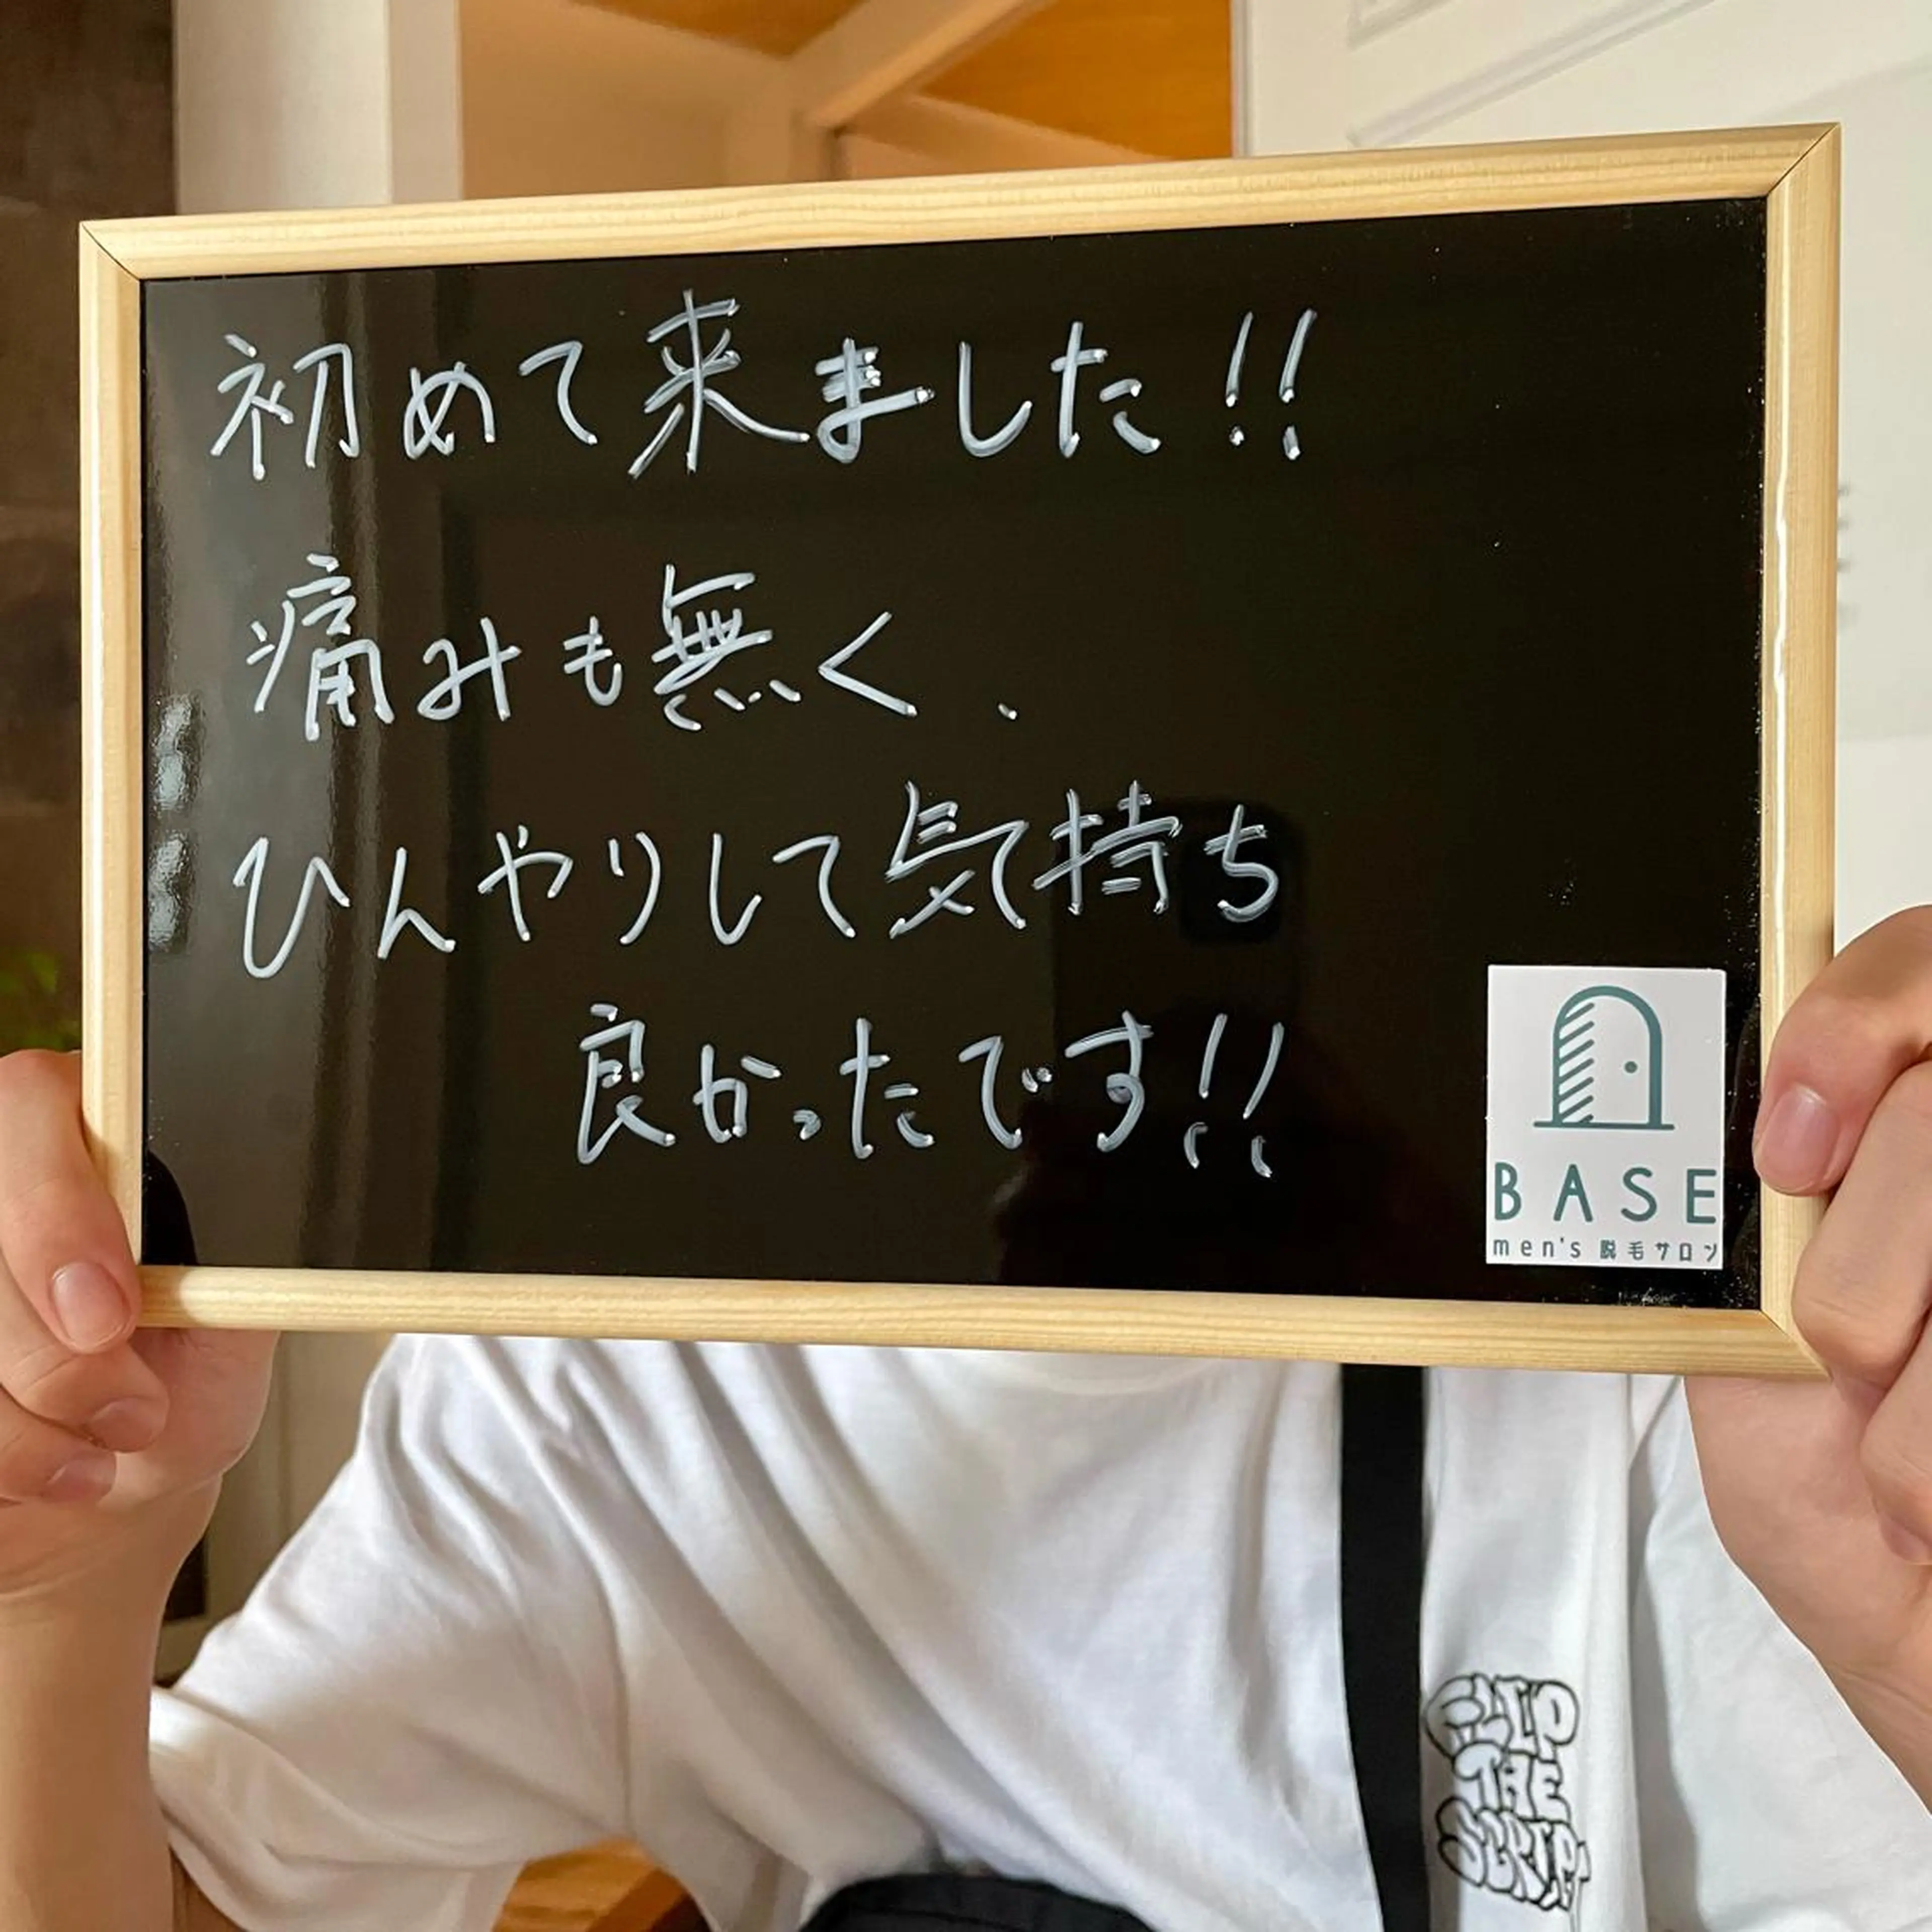 初めて来ました!!
痛みも無く、
ひんやりして気持ち
良かったです!!
BASE
men's 脱毛サロン
FLIP
THE
SCRIPT